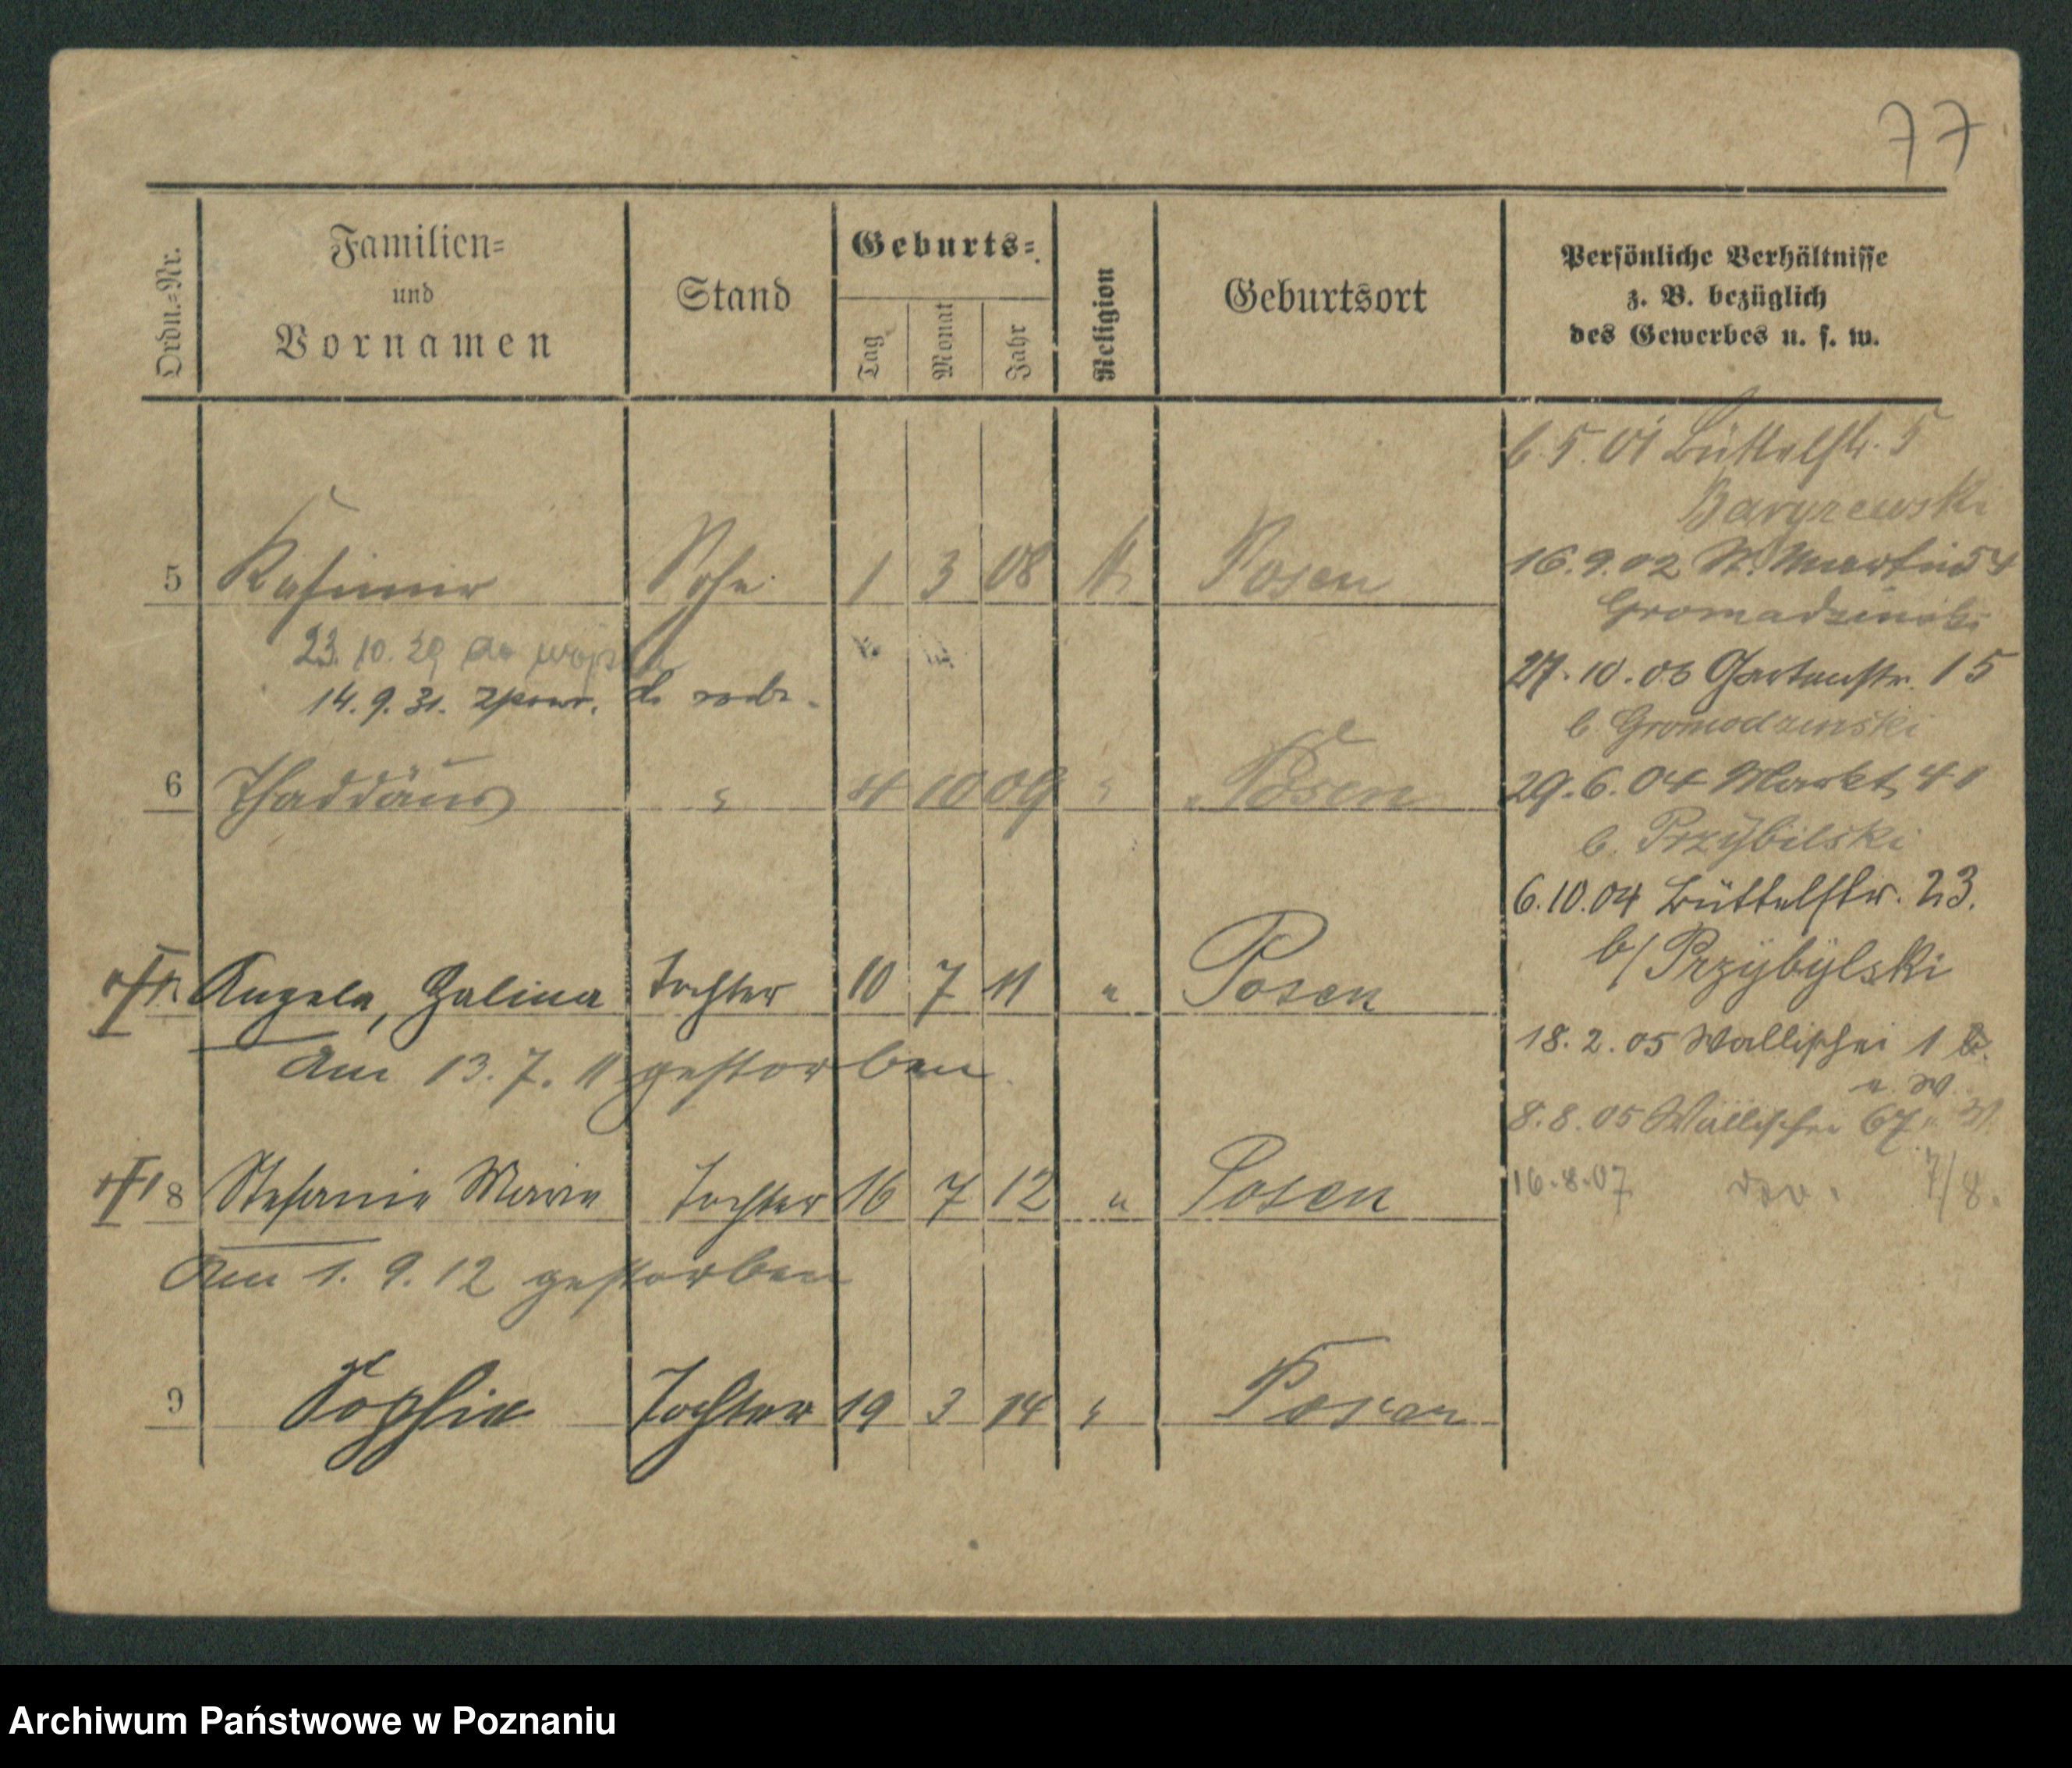 77
Ordn.=Nr.
Familien=
und
Vornamen
Stand
Geburts=
Tag
Monat
Jahr
Religion
Geburtsort
Persönliche Verhältnisse
z. B. bezüglich
des Gewerbes u. s. w.
5 Kasimir Sohn 1 3 08 Posen
23. 10. 29 do wojska
14. 9. 31.
6 Thaddäus " 4 10 09 " Posen
Angela, Halina Tochter 10 7 11 " Posen
Am 13. 7. 11 gestorben
8 Stefanie Maria Tochter 16 7 12 " Posen
Am 1. 9. 12 gestorben
9 Sophie Tochter 19 3 14 " Posen
5. 01 Büttelstr. 5
16. 9. 02 St. Martin 54
Gromadzinski
27. 10. 03 Gartenstr. 15
b. Gromodzinski
29. 6. 04 Markt 41
b. Przybilski
6. 10. 04 Büttelstr. 23.
b/ Przybylski
18. 2. 05 Wallischei 1
8. 8. 05 Wallischei 67
16. 8. 07 7/8.
Archiwum Państwowe w Poznaniu